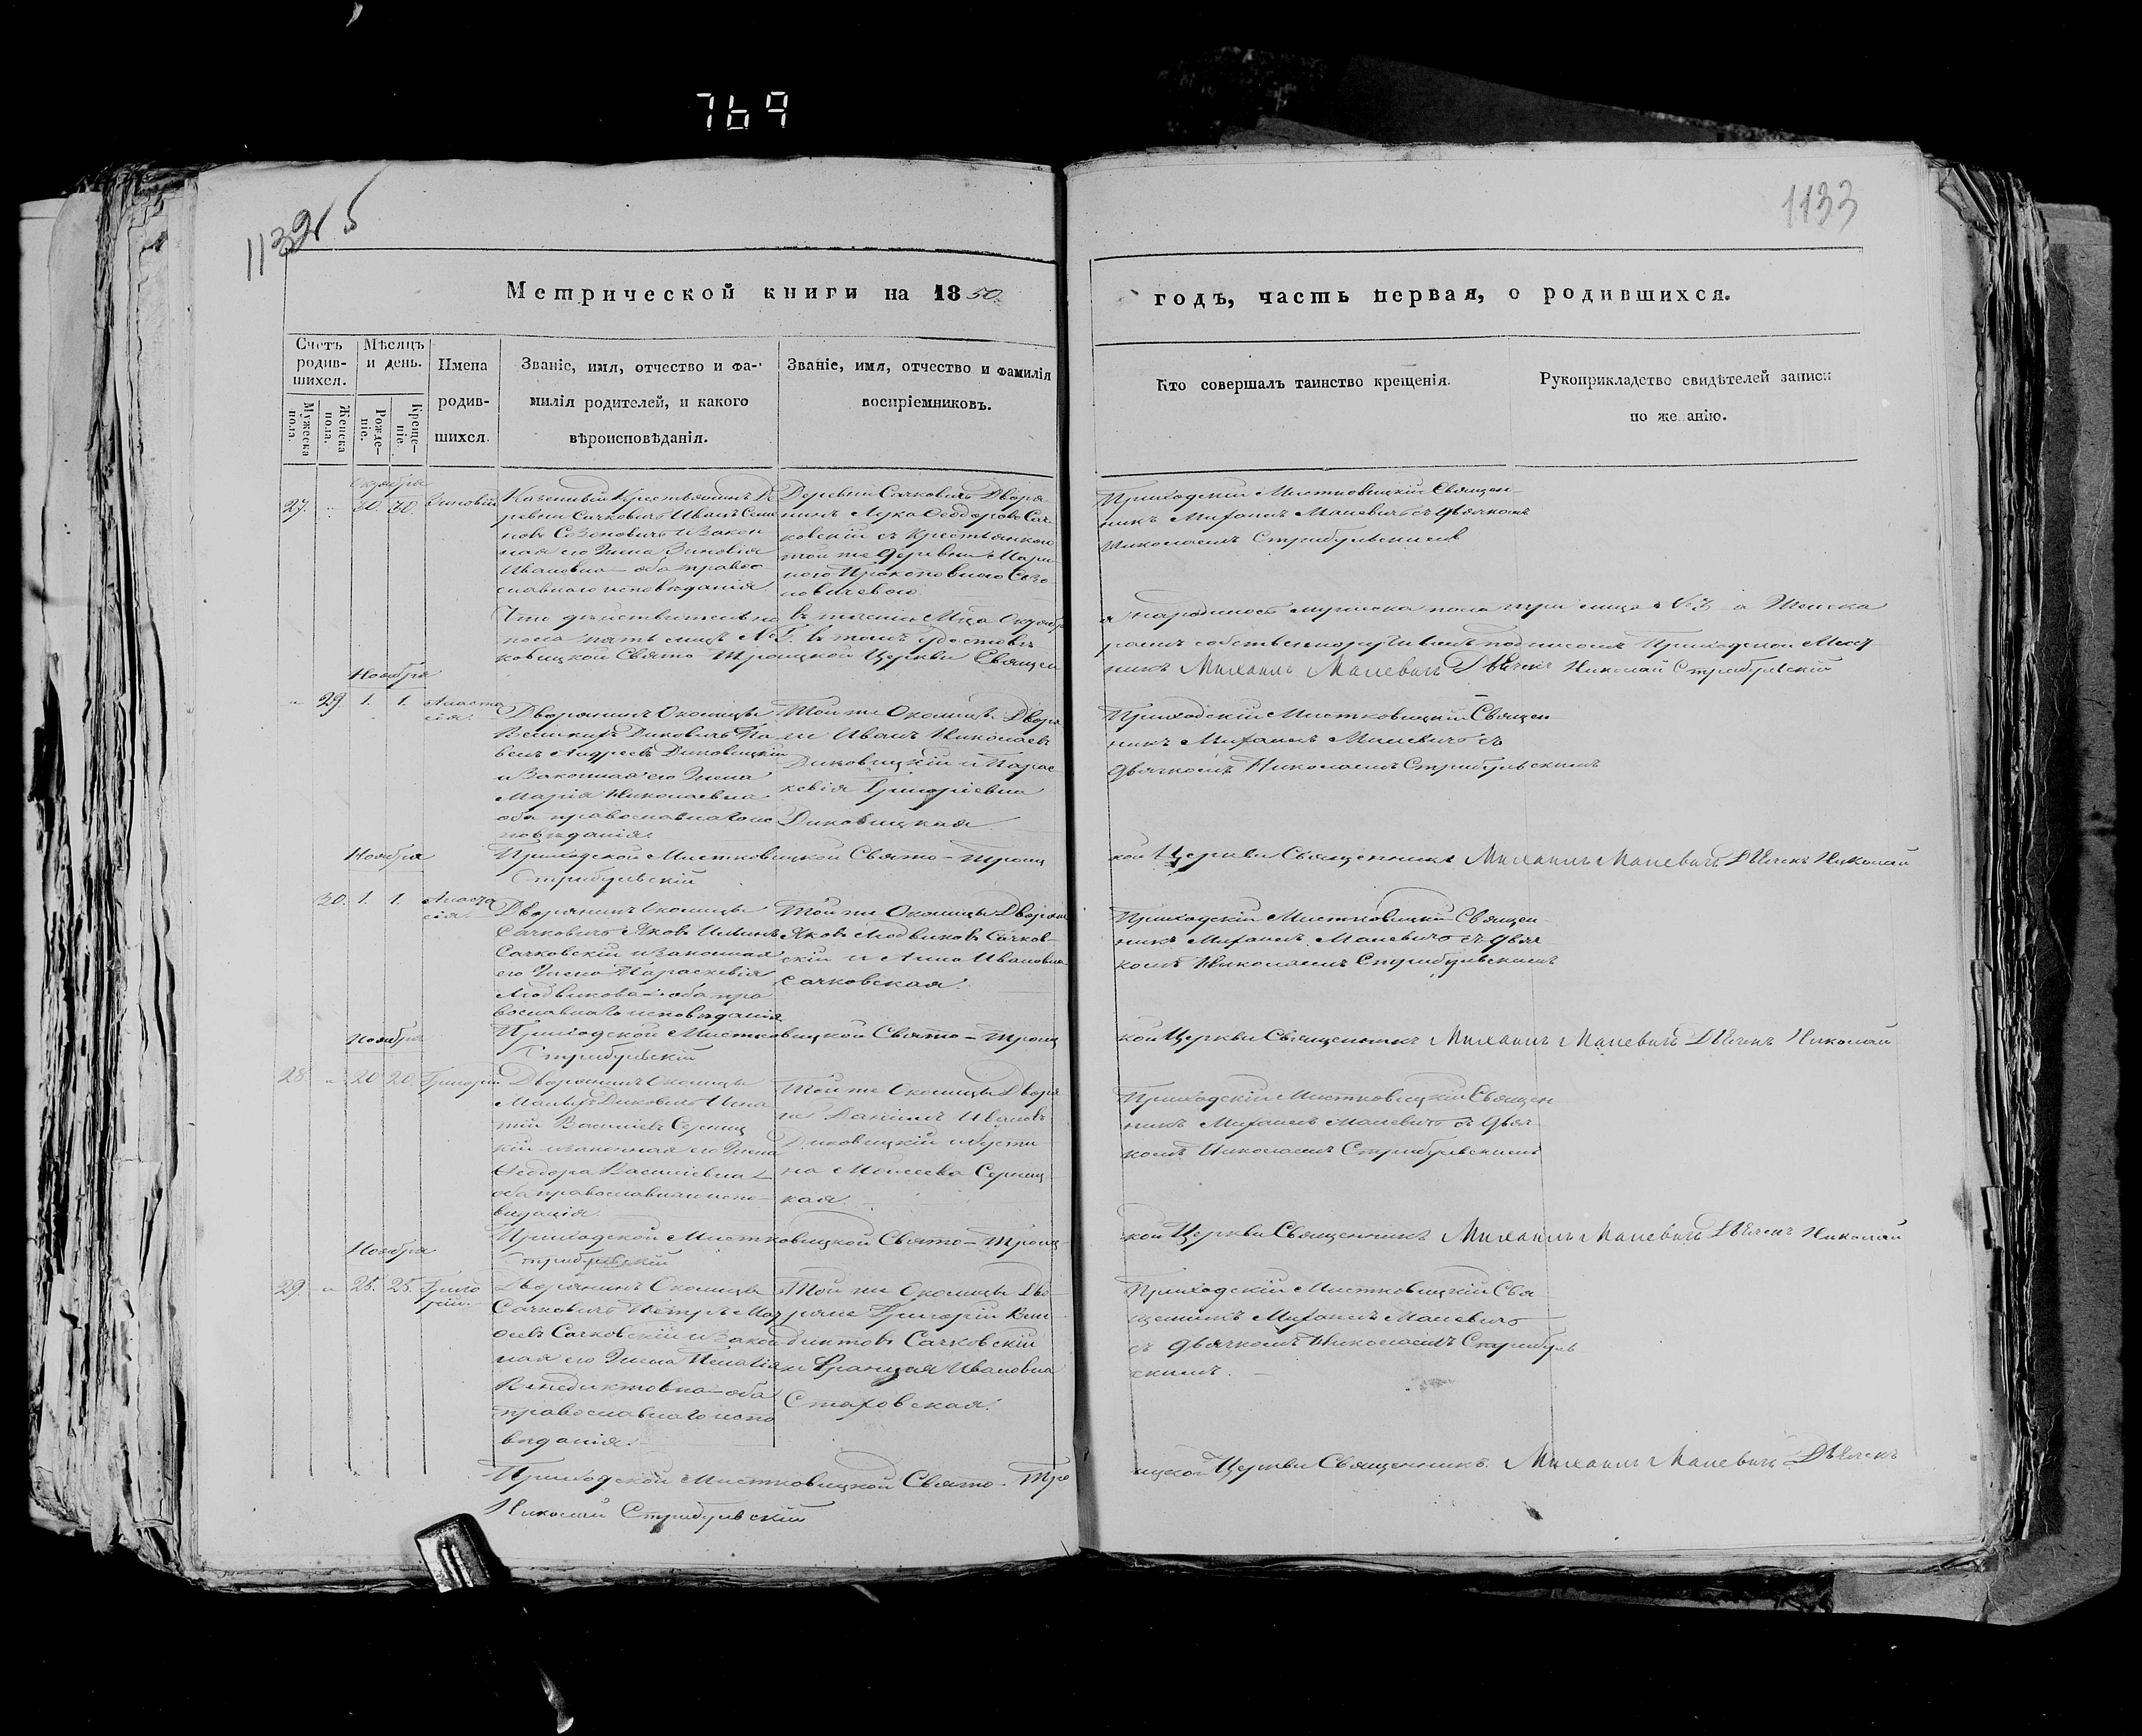 769
1133
Метрической книги на 1850.
годъ, часть первая, о родившихся.
Счетъ родив-шихся.
Мужеска пола.
Женска пола.
Мѣсяцъ и день.
Рожде-ніе.
Креще-ніе.
Имена
родив-
шихся.
Званіе, имя, отчество и фа-
милія родителей, и какого
вѣроисповѣданія.
Званіе, имя, отчество и фамилія
воспріемниковъ.
Кто совершалъ таинство крещенія.
Рукоприкладство свидѣтелей записи
по желанію.
Октября
27. 30 30. Зиновій
Казенный Крестьянинъ Де
ревни Сачковичъ Иванъ Семе
новъ Созоновичъ и Закон
ная его Жена Зиновія
Ивановна – оба правос
лавнаго исповѣданія
Деревни Сачковичъ Дворя
нинъ Лука Ѳеодоровъ Сач
ковскій съ Крестьянкою
той же деревни Мари
ною Прокоповною Созо
новичевою
Приходскій Мистковицкій Священ
никъ Михаилъ Малевичъ съ дьячкомъ
Николаемъ Стрибульскимъ
Что дѣйствительно въ теченіи Мца Октября
народилось мужеска пола три лица № 3, а Женска
пола пять лицъ № 5. въ томъ удостовѣ
ряемъ собственноручнымъ подписомъ Приходской Мист
ковицкой Свято Троицкой Церкви Священ
никъ Михаилъ Малевичъ Дьячекъ Николай Стрибульскій
Ноября
29. 1. 1. Анаста
сія.
Дворянинъ Околицы
Великихъ Диковичъ Па
велъ Андреевъ Диковицкій
и Законная его Жена
Марія Николаевна
оба православнаго ис
повѣданія.
Той же Околицы Дворя
не Иванъ Николаевъ
Диковицкій и Парас
кевія Григоріевна
Диковицкая
Приходскій Мистковицкій Священ
никъ Михаилъ Малевичъ съ
дьячкомъ Николаемъ Стрибульскимъ
Приходской Мистковицкой Свято – Троиц
кой Церкви Священникъ Михаилъ Малевичъ Дьячекъ Николай
Стрибульскій
Ноября
30. 1. 1. Анаста
сія.
Дворянинъ Околицы
Сачковичъ Яковъ
Сачковскій и Законная
его Жена Параскевія
Людвикова – оба пра
вославнаго исповѣданія
Той же Околицы Дворяне
Яковъ Людвиковъ Сачков
скій и Анна Ивановна
Сачковская.
Приходскій Мистковицкій Священ
никъ Михаилъ Малевичъ съ дьяч
комъ Николаемъ Стрибульскимъ
Приходской Мистковицкой Свято – Троиц
кой Церкви Священникъ Михаилъ Малевичъ Дьячекъ Николай
Стрибульскій
Ноября
28. 20 20. Григорій
Дворянинъ Околицы
Малыхъ Диковичъ Игна
тій Васильевъ Серниц
кій и законная его Жена
Ѳеодора Василіевна
оба православнаго испо
вѣданія
Той же Околицы Дворя
не Даніилъ Ивановъ
Диковицкій и Усти
на Моисеева Серниц
кая
Приходскій Мистковицкій Священ
никъ Михаилъ Малевичъ съ дьяч
комъ Николаемъ Стрибульскимъ
Приходской Мистковицкой Свято – Троиц
кой Церкви Священникъ Михаилъ Малевичъ Дьячекъ Николай
Стрибульскій
Ноября
29. 25. 25. Григо
рій.
Дворянинъ Околицы
Сачковичъ Петръ
Сачковскій и Закон
ная его Жена
Венедиктовна – оба
православнаго испо
вѣданія.
Той же Околицы Дво
ряне Григорій Вене
диктовъ Сачковскій
и Франція Ивановна
Стаховская.
Приходскій Мистковицкій Свя
щенникъ Михаилъ Малевичъ
съ дьячкомъ Николаемъ Стрибуль
скимъ.
Приходской Мистковицкой Свято – Тро
ицкой Церкви Священникъ Михаилъ Малевичъ Дьячекъ
Николай Стрибульскій